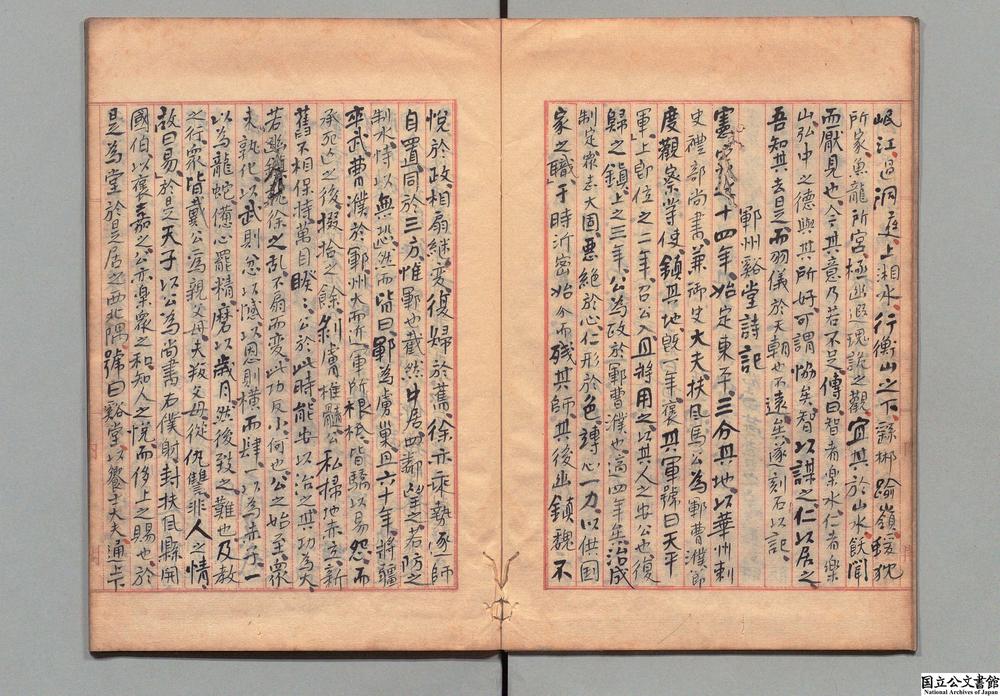 岷江過洞庭上湘水行衡山之下繇郴踰嶺蝯狖
所家魚龍所宮極幽遐瑰詭之觀宜其於山水飫聞
而厭見也今其意乃若不足傳曰智者樂水仁者樂
山弘中之德與其所好可謂恊矣智以謀之仁以居之
吾知其去是而羽儀於天朝也不遠矣遂刻石以記
鄆州谿堂詩記
憲宗之十四年始定東平三分其地以華州刺
史禮部尚書兼御史大夫扶風馬公為鄆曹濮節
度觀察等使鎮其地既一年褒其軍號曰天平
軍上即位之二年召公入且將用之以其人之安公也復
歸之鎮上之三年公為政於鄆曹濮也適四年矣治成
制定衆志大固惡絕於心仁形於色竱心一力以供國
家之職于時沂密始分而殘其帥其後幽鎮魏不
悅於政相扇継変復歸於舊徐亦乘勢逐帥
自置同於三方惟鄆也截然中居四鄰望之若防之
制水恃以無恐然而皆曰鄆為虜巢且六十年將疆
卒武曹濮於鄆州大而近軍所根柢皆驕以易怨而
承死亡之後掇拾之餘剝膚椎髓公私掃地赤立新
舊不相保持萬目睽〻公於此時能安以治之其功為大
若幽鎮魏徐之乱不扇而変此功反小何也公之始至衆
未孰化以武則忿以憾以恩則横而肆一以為赤子一
以為龍蛇憊心罷精磨以歲月然後致之難也及敎
之行衆皆戴公為親父母夫叛父母從仇讐非人之情
故曰易於是天子以公為尚書右僕射封扶風縣開
國伯以褒嘉之公亦楽衆之和知人之悅而侈上之賜也於
是為堂於是居之西北隅號曰谿堂以饗士大夫通上下
国立公文書館
National Archives of Japan